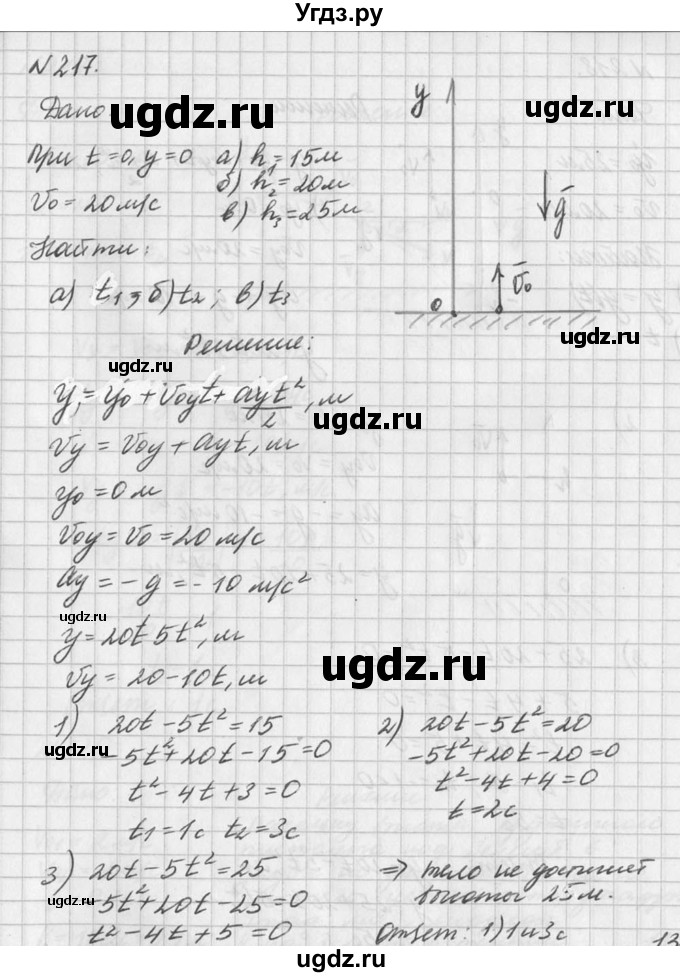 Угдз.ру
N 217.
Дано:
ugdz.ru
При t=0, y=0 а) h₁=15м
б) h₂=20м
V₀=20м/с в) h₃=25м
Найти:
а) t₁, б) t₂; в) t₃
y
g
V₀
0
ugdz.ru
Решение:
ugdz.ru
y₁=y₀+V₀yt+ayt²/2, м
Vy=V₀y+ayt, м
ugdz.ru
y₀=0м
V₀y=V₀=20 м/с
ay=-g=-10 м/с²
ugdz.ru
y=20t 5t², м
Vy=20-10t, м
ugdz.ru
1) 20t-5t²=15
ugdz.ru
-5t²+20t-15=0
t²-4t+3=0
t₁=1с t₂=3с
2) 20t-5t²=20
-5t²+20t-20=0
t²-4t+4=0
t=2с
ugdz.ru
3) 20t-5t²=25
ugdz.ru
5t²+20t-25=0
t²-4t+5=0
=> тело не достигнет
высоты 25м.
Ответ: 1) 1 и 3с
ugdz.ru
12